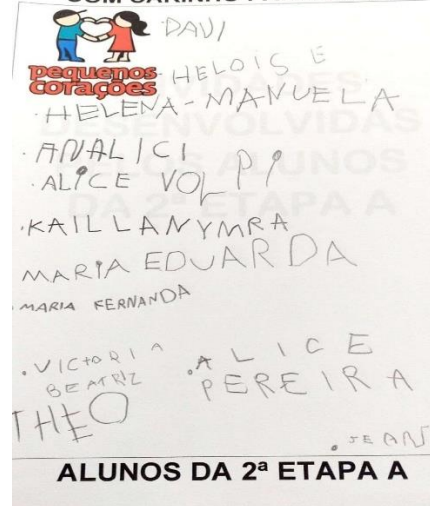 COM CARINHO
DAVI
pequenos
corações
HELOISE
HELENA-MANUELA
ANALICI
ALICE VOLPI
KAILLANYMRA
MARIA EDUARDA
MARIA FERNANDA
VICTORIA
BEATRIZ
ALICE
PEREIRA
THEO
JEAN
ALUNOS DA 2ª ETAPA A